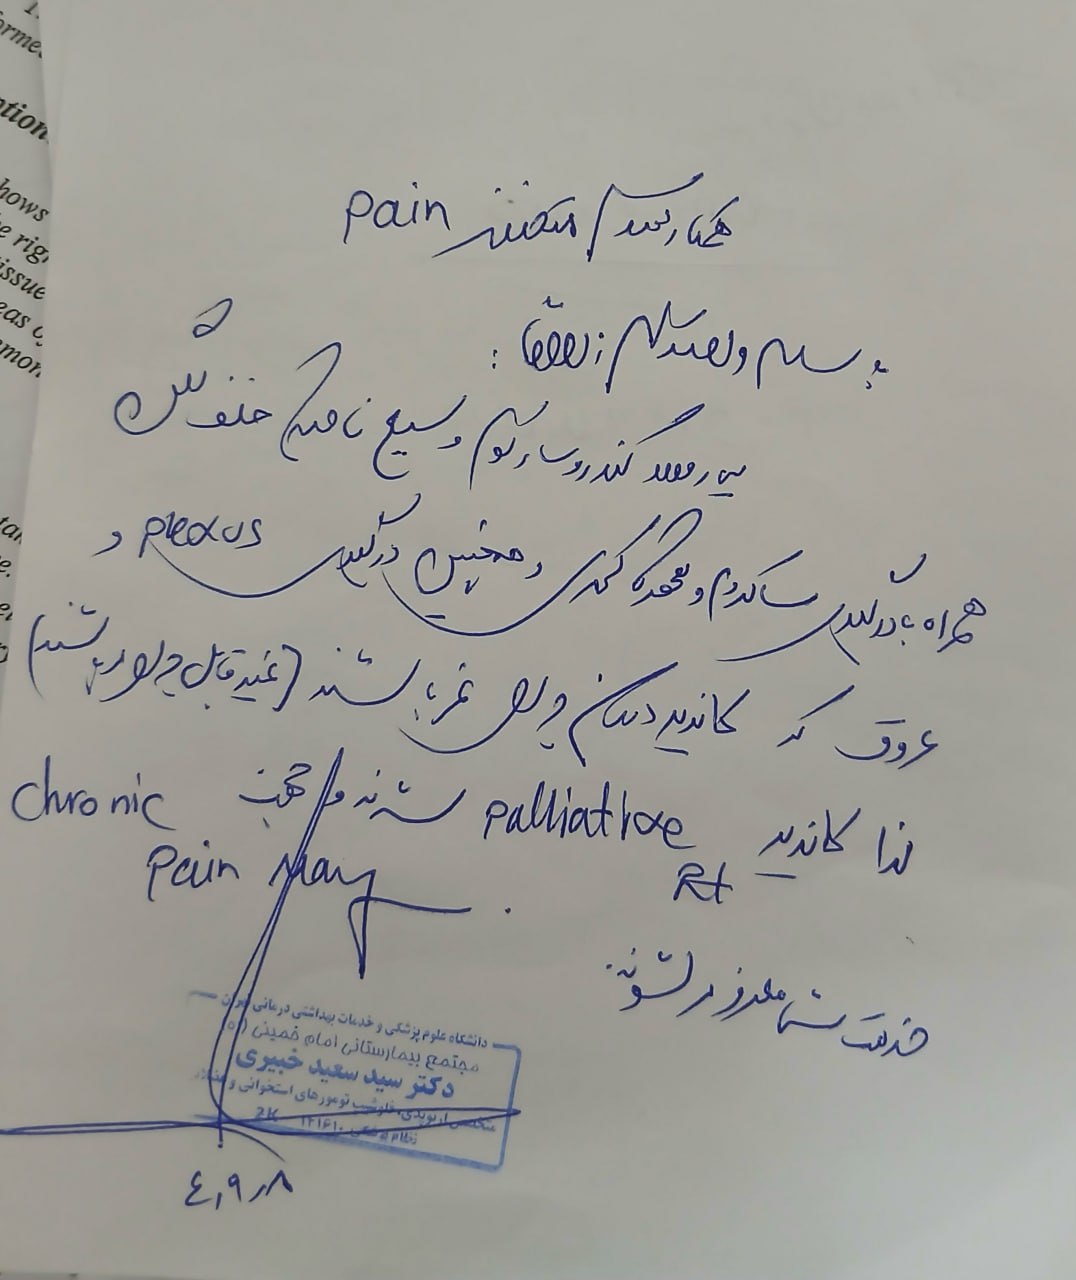 همکار محترم متخصص pain
با سلام و احترام :
بیمار مورد کندروسارکوم وسیع ناحیه خلف لگن
همراه با درگیری ساکروم و مهره کمری و همچنین درگیری plexus و
عروق که کاندید درمان جراحی نمی‌باشند (غیر قابل جراحی می‌باشند)
لذا کاندید palliative شدند و جهت chronic
Rt Pain
خدمت شما معرفی می‌شوند.
دانشگاه علوم پزشکی و خدمات بهداشتی درمانی تهران
مجتمع بیمارستانی امام خمینی (ره)
دکتر سید سعید خبیری
متخصص ارتوپدی، فلوشیپ تومورهای استخوانی و
نظام پزشکی
۴,۹,۸
formed
shows
the right
tissue